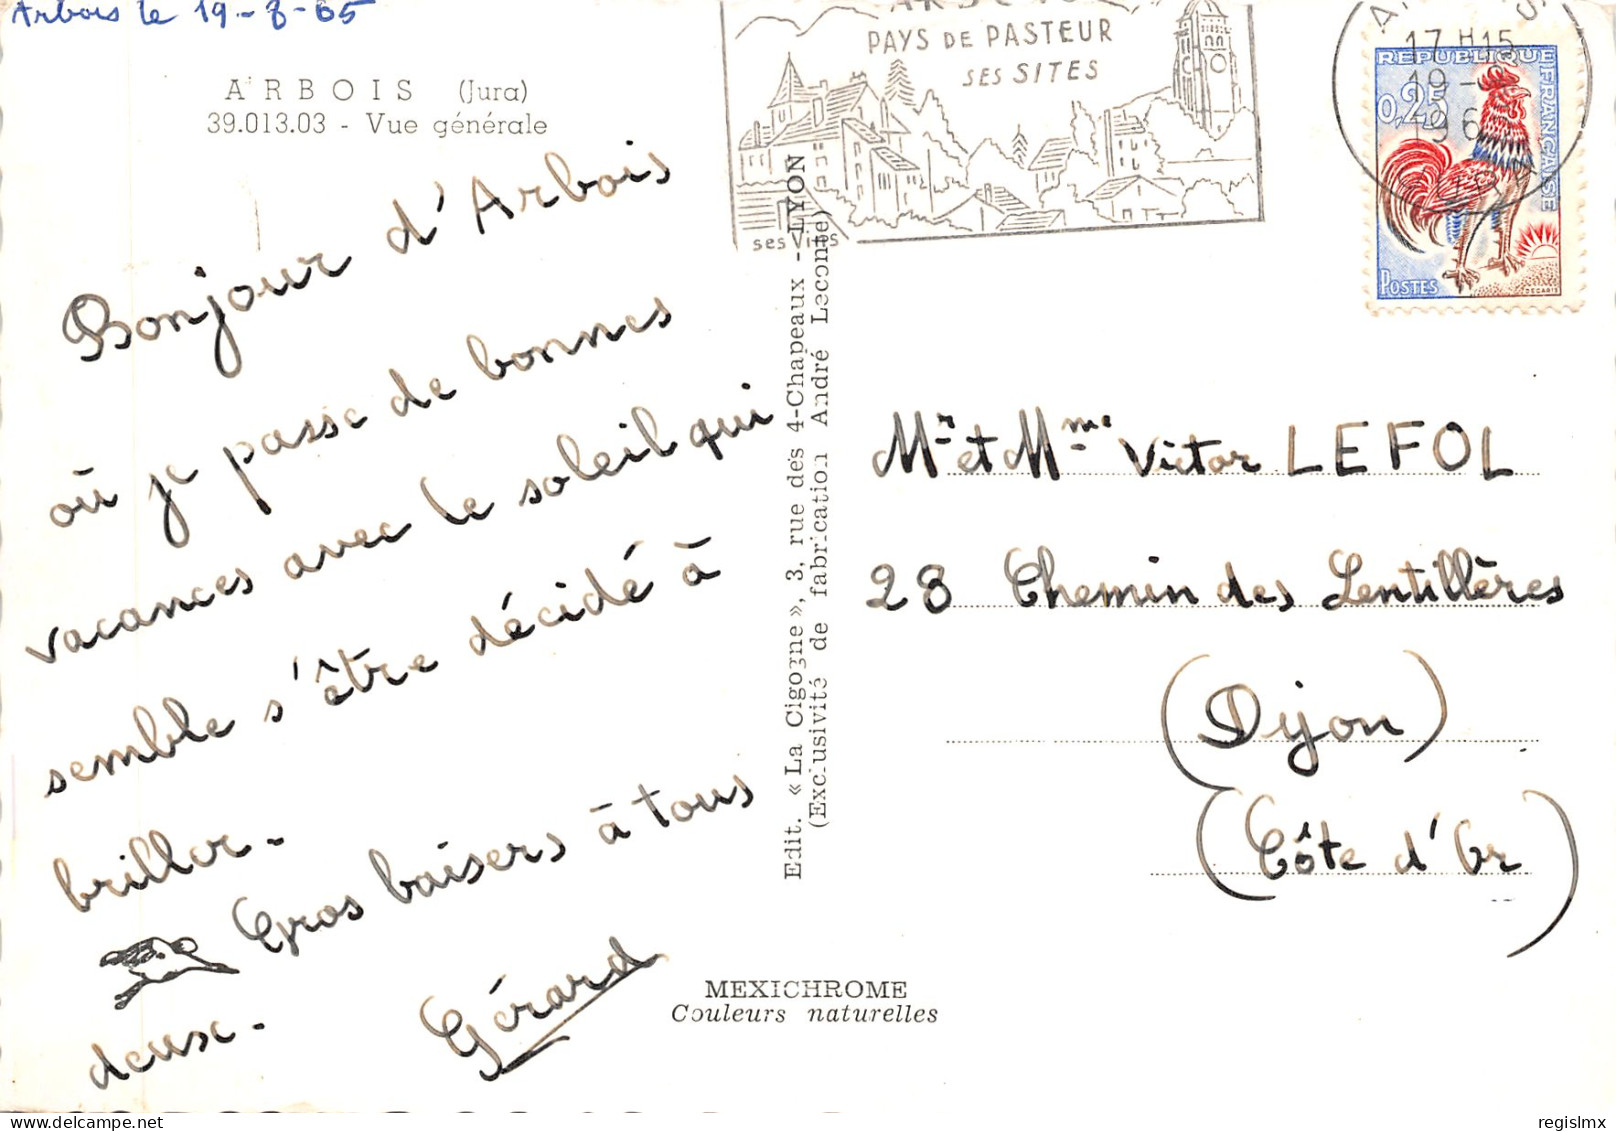 Arbois le 19-8-65
ARBOIS (Jura)
39.013.03 - Vue générale
Bonjour d'Arbois
où je passe de bonnes
vacances avec le soleil qui
semble s'être décidé à
briller.
Gros baisers à tous
deux.
Gérard
Edit. « La Cigogne », 3, rue des 4-Chapeaux - LYON
(Exclusivité de fabrication André Leconte)
MEXICHROME
Couleurs naturelles
PAYS DE PASTEUR
SES SITES
ses Vins
17 H 15
19 -
196
REPUBLIQUE FRANÇAISE
0,25
POSTES
DECARIS
Mr et Mme Victor LEFOL
28 Chemin des Lentillères
(Dijon)
(Côte d'Or)
regislmx